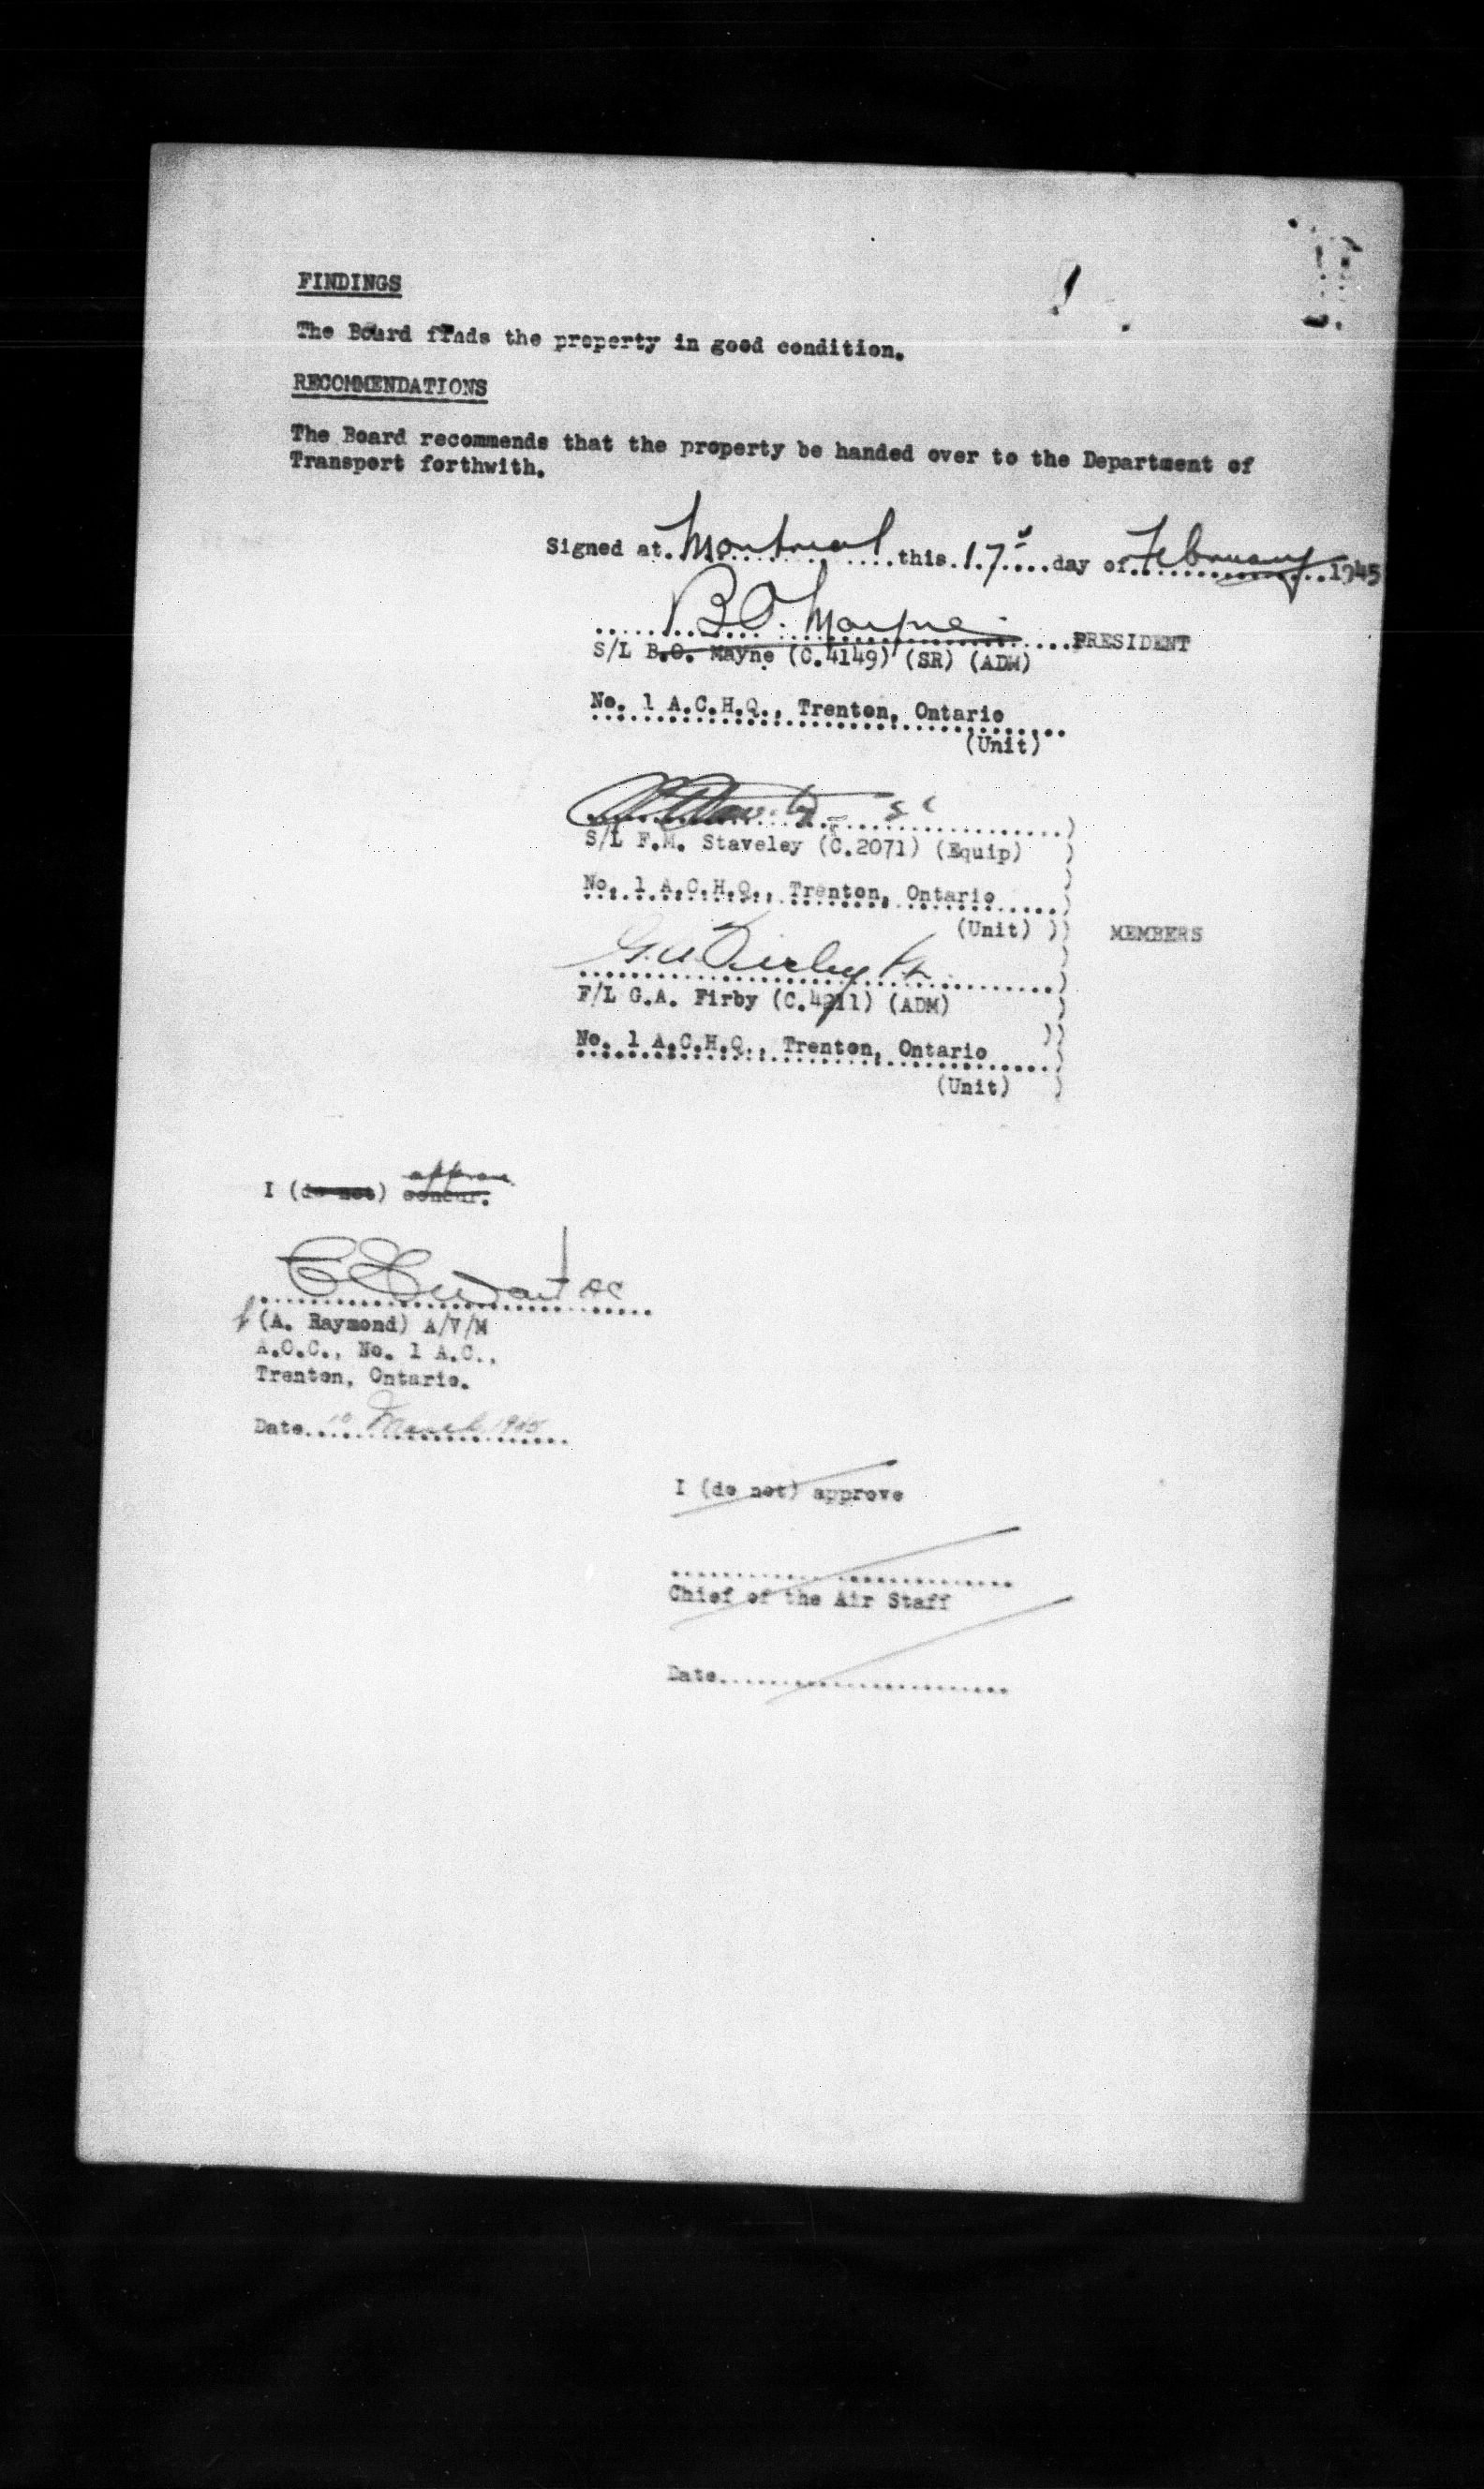 FINDINGS
The Board finds the property in good condition.
RECOMMENDATIONS
The Board recommends that the property be handed over to the Department of
Transport forthwith.
Signed at Montreal this 17th day of February 1945
B.O. Mayne PRESIDENT
S/L B.O. Mayne (C.4149) (SR) (ADM)
No. 1 A.C.H.Q., Trenton, Ontario
(Unit)
S/L F.M. Staveley (C.2071) (Equip)
No. 1 A.C.H.Q., Trenton, Ontario
(Unit) MEMBERS
G.A. Firby F/L
F/L G.A. Firby (C.4211) (ADM)
No. 1 A.C.H.Q., Trenton, Ontario
(Unit)
approve
I (do not) concur.
(A. Raymond) A/V/M
A.O.C., No. 1 A.C.,
Trenton, Ontario.
Date 10 March 1945
I (do not) approve
Chief of the Air Staff
Date